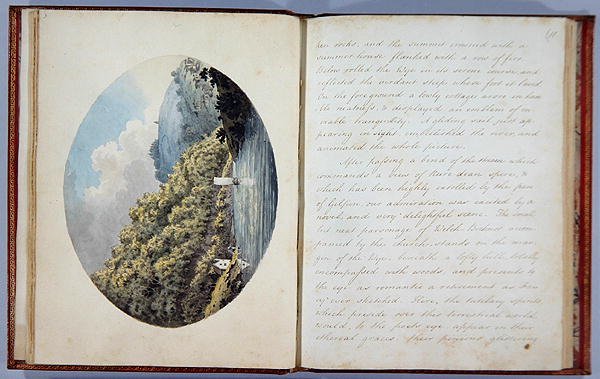 41
ken rocks, and the summit crowned with a
summer house flanked with a row of firs.
Below rolled the Wye in its serene course and
reflected the verdant steeps whose foot it laved
On the foreground a lowly cottage arose in hum
ble neatness, & displayed an emblem of en
viable tranquility. A gliding sail just ap
pearing in sight embellished the river, and
animated the whole picture.
After passing a bend of the stream which
commands a view of Rure dean spire, &
which has been highly extolled by the pen
of Gilpin, our admiration was excited by a
novel and very delightful scene. The small
but neat parsonage of Welch Bicknor accom
panied by the church, stands on the mar
gin of the Wye, beneath a lofty hill totally
encompassed with woods and presents to
the eye as romantic a retirement as Fan
cy ever sketched. Here, the tutelary spirits
which preside over this terrestrial world
would, to the poets eye appear in their
ethereal graces, their pinions glistening